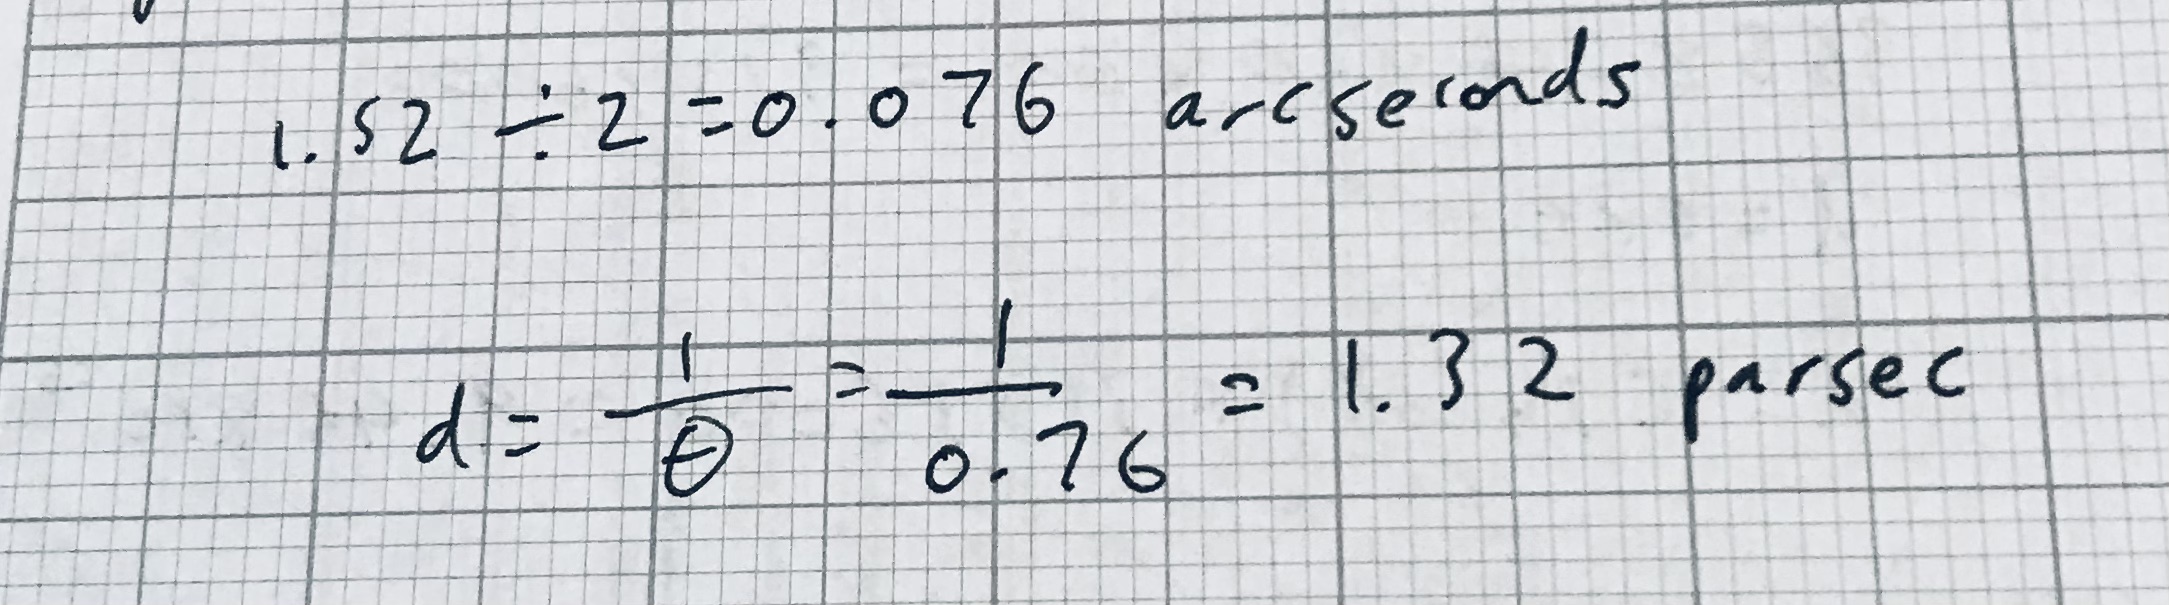 1.52 ÷ 2 = 0.076 arcseconds
d = 1/θ = 1/0.76 = 1.32 parsec